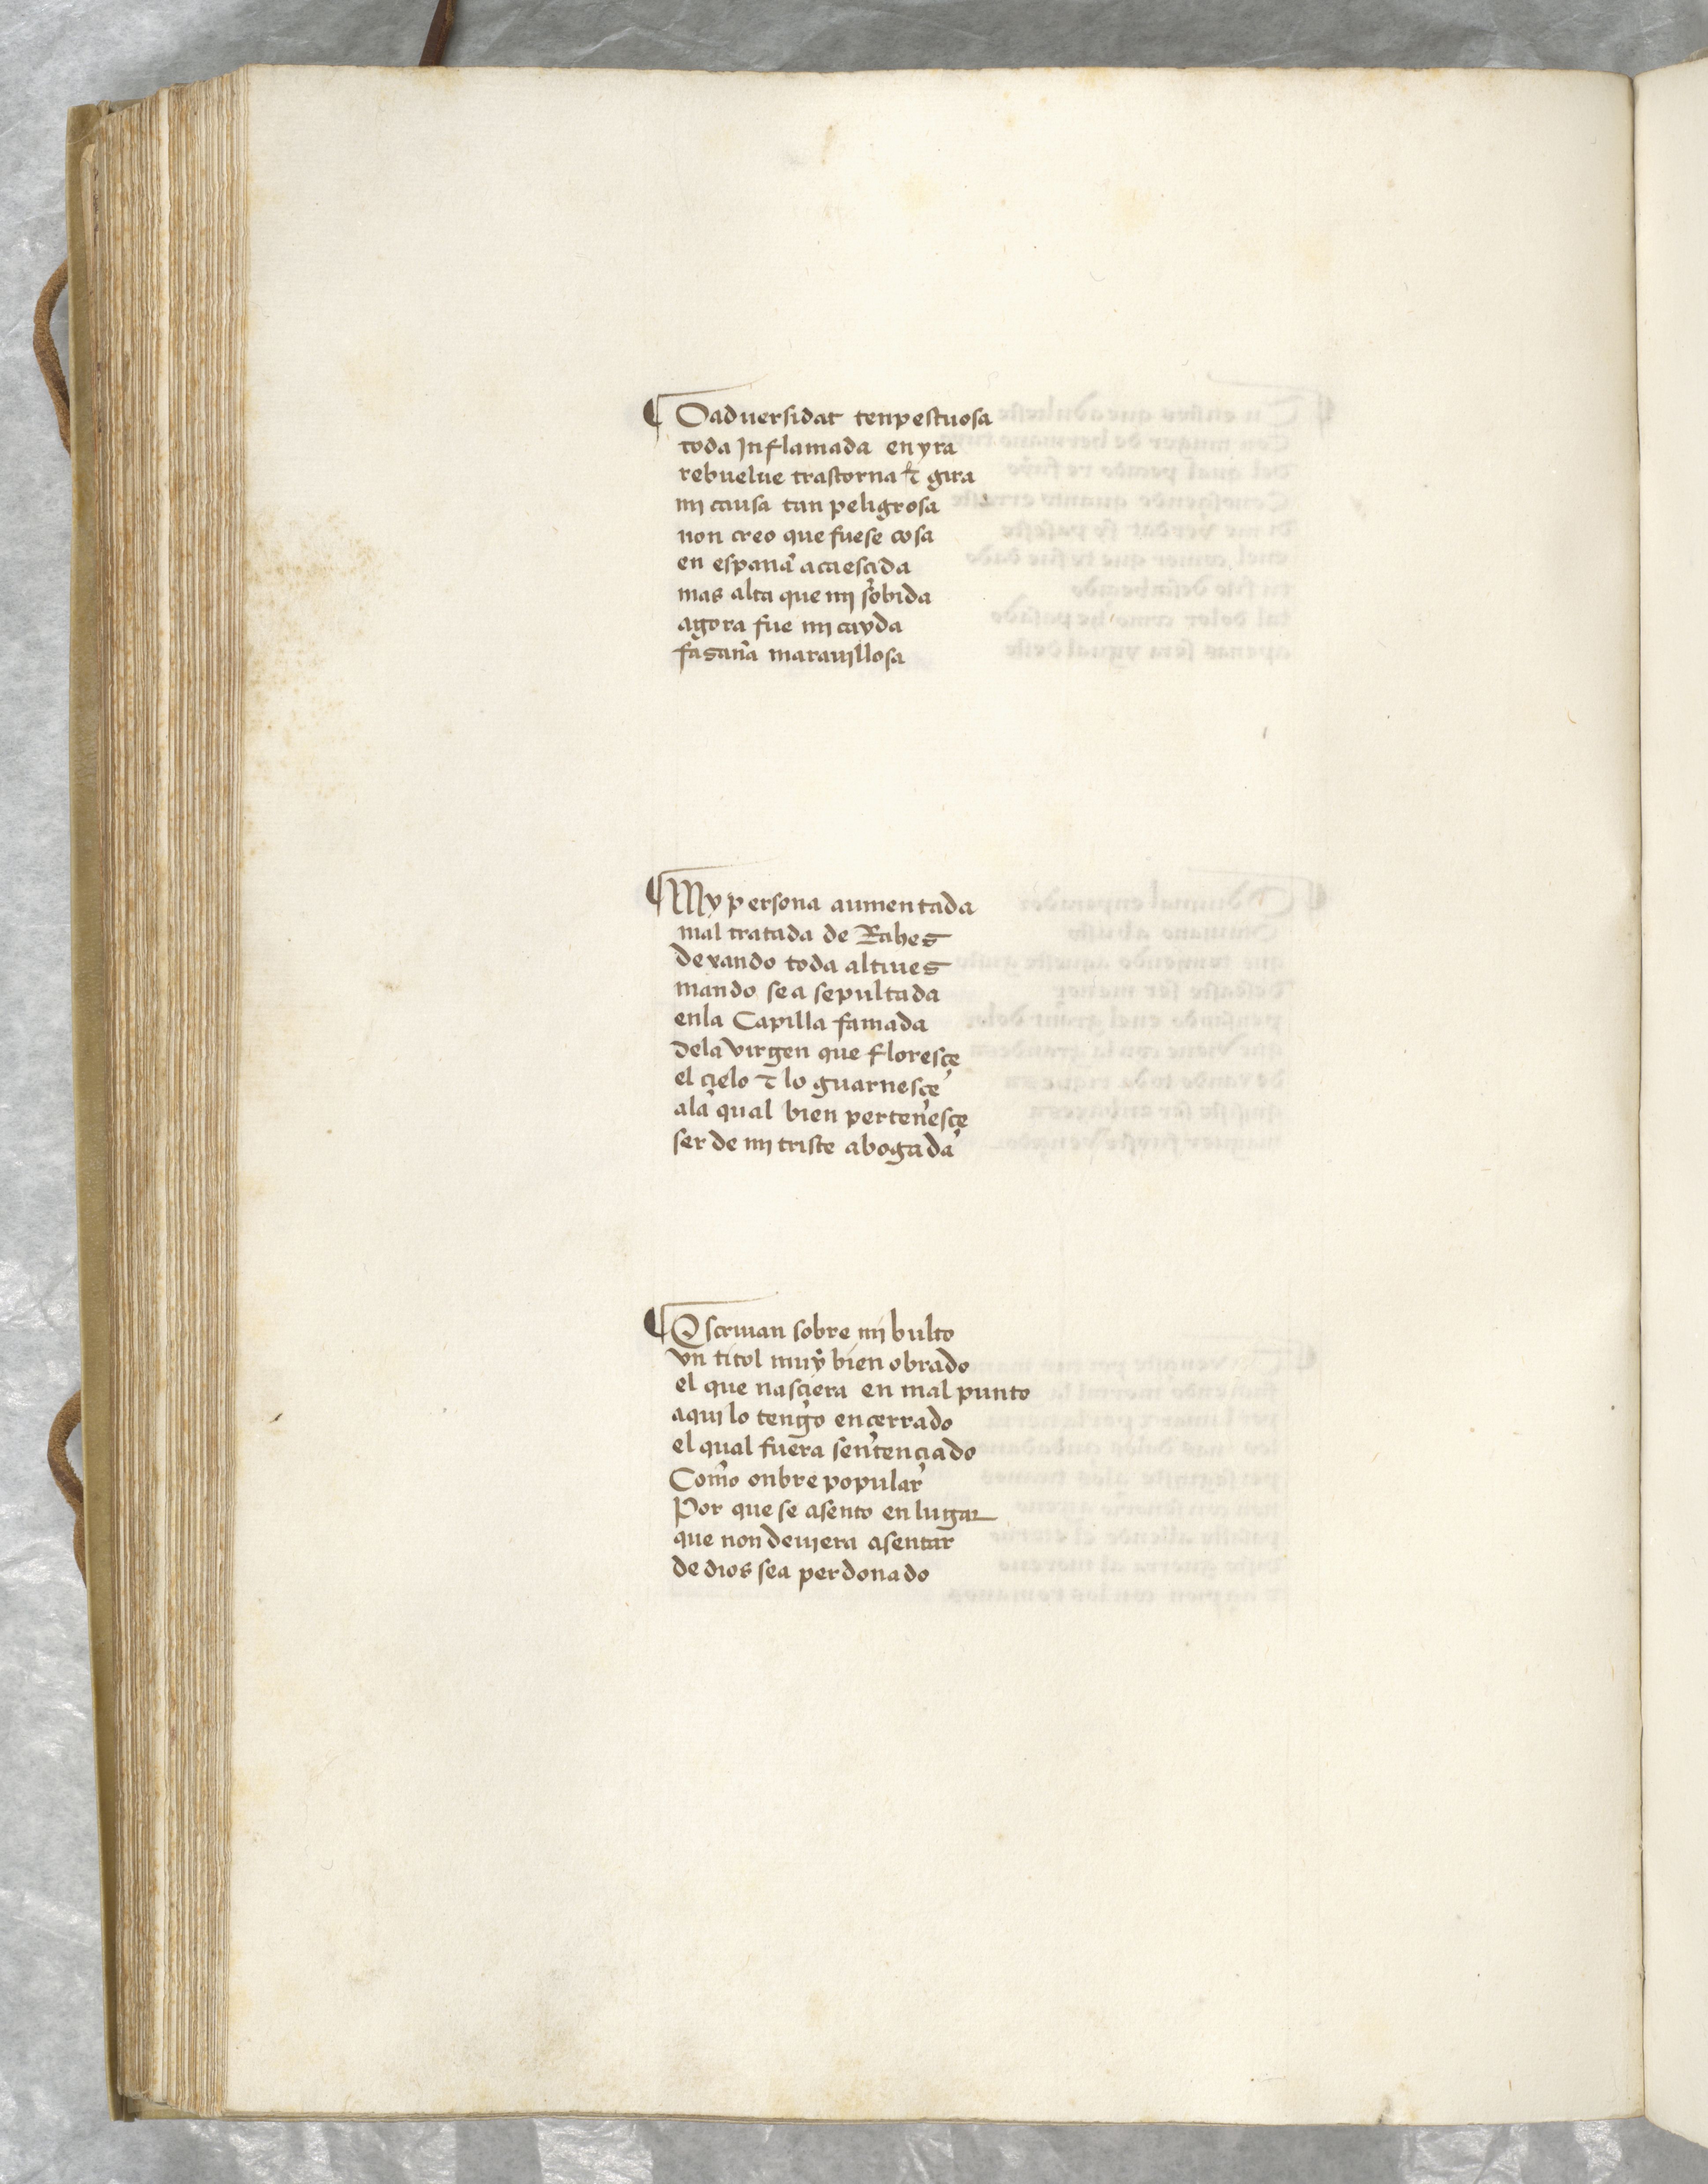 ¶ O aduersidat tenpestuosa
toda Jnflamada en yra
rebuelue trastorna ⁊ gira
mi causa tan peligrosa
non creo que fuese cosa
en espana acaescida
mas alta que mi sobida
agora fue mi cayda
fasana marauillosa
¶ My persona aumentada
mal tratada de Rahes
dexando toda altiues
mando sea sepultada
enla Capilla famada
dela virgen que floresçe
el cielo ⁊ lo guarnesçe
ala qual bien pertenesçe
ser de mi triste abogada
¶ Escriuan sobre mi bulto
vn titol muy bien obrado
el que nasciera en mal punto
aqui lo tengo encerrado
el qual fuera sentenciado
Como onbre popular
Por que se asento en lugar
que non deuiera asentar
de dios sea perdonado